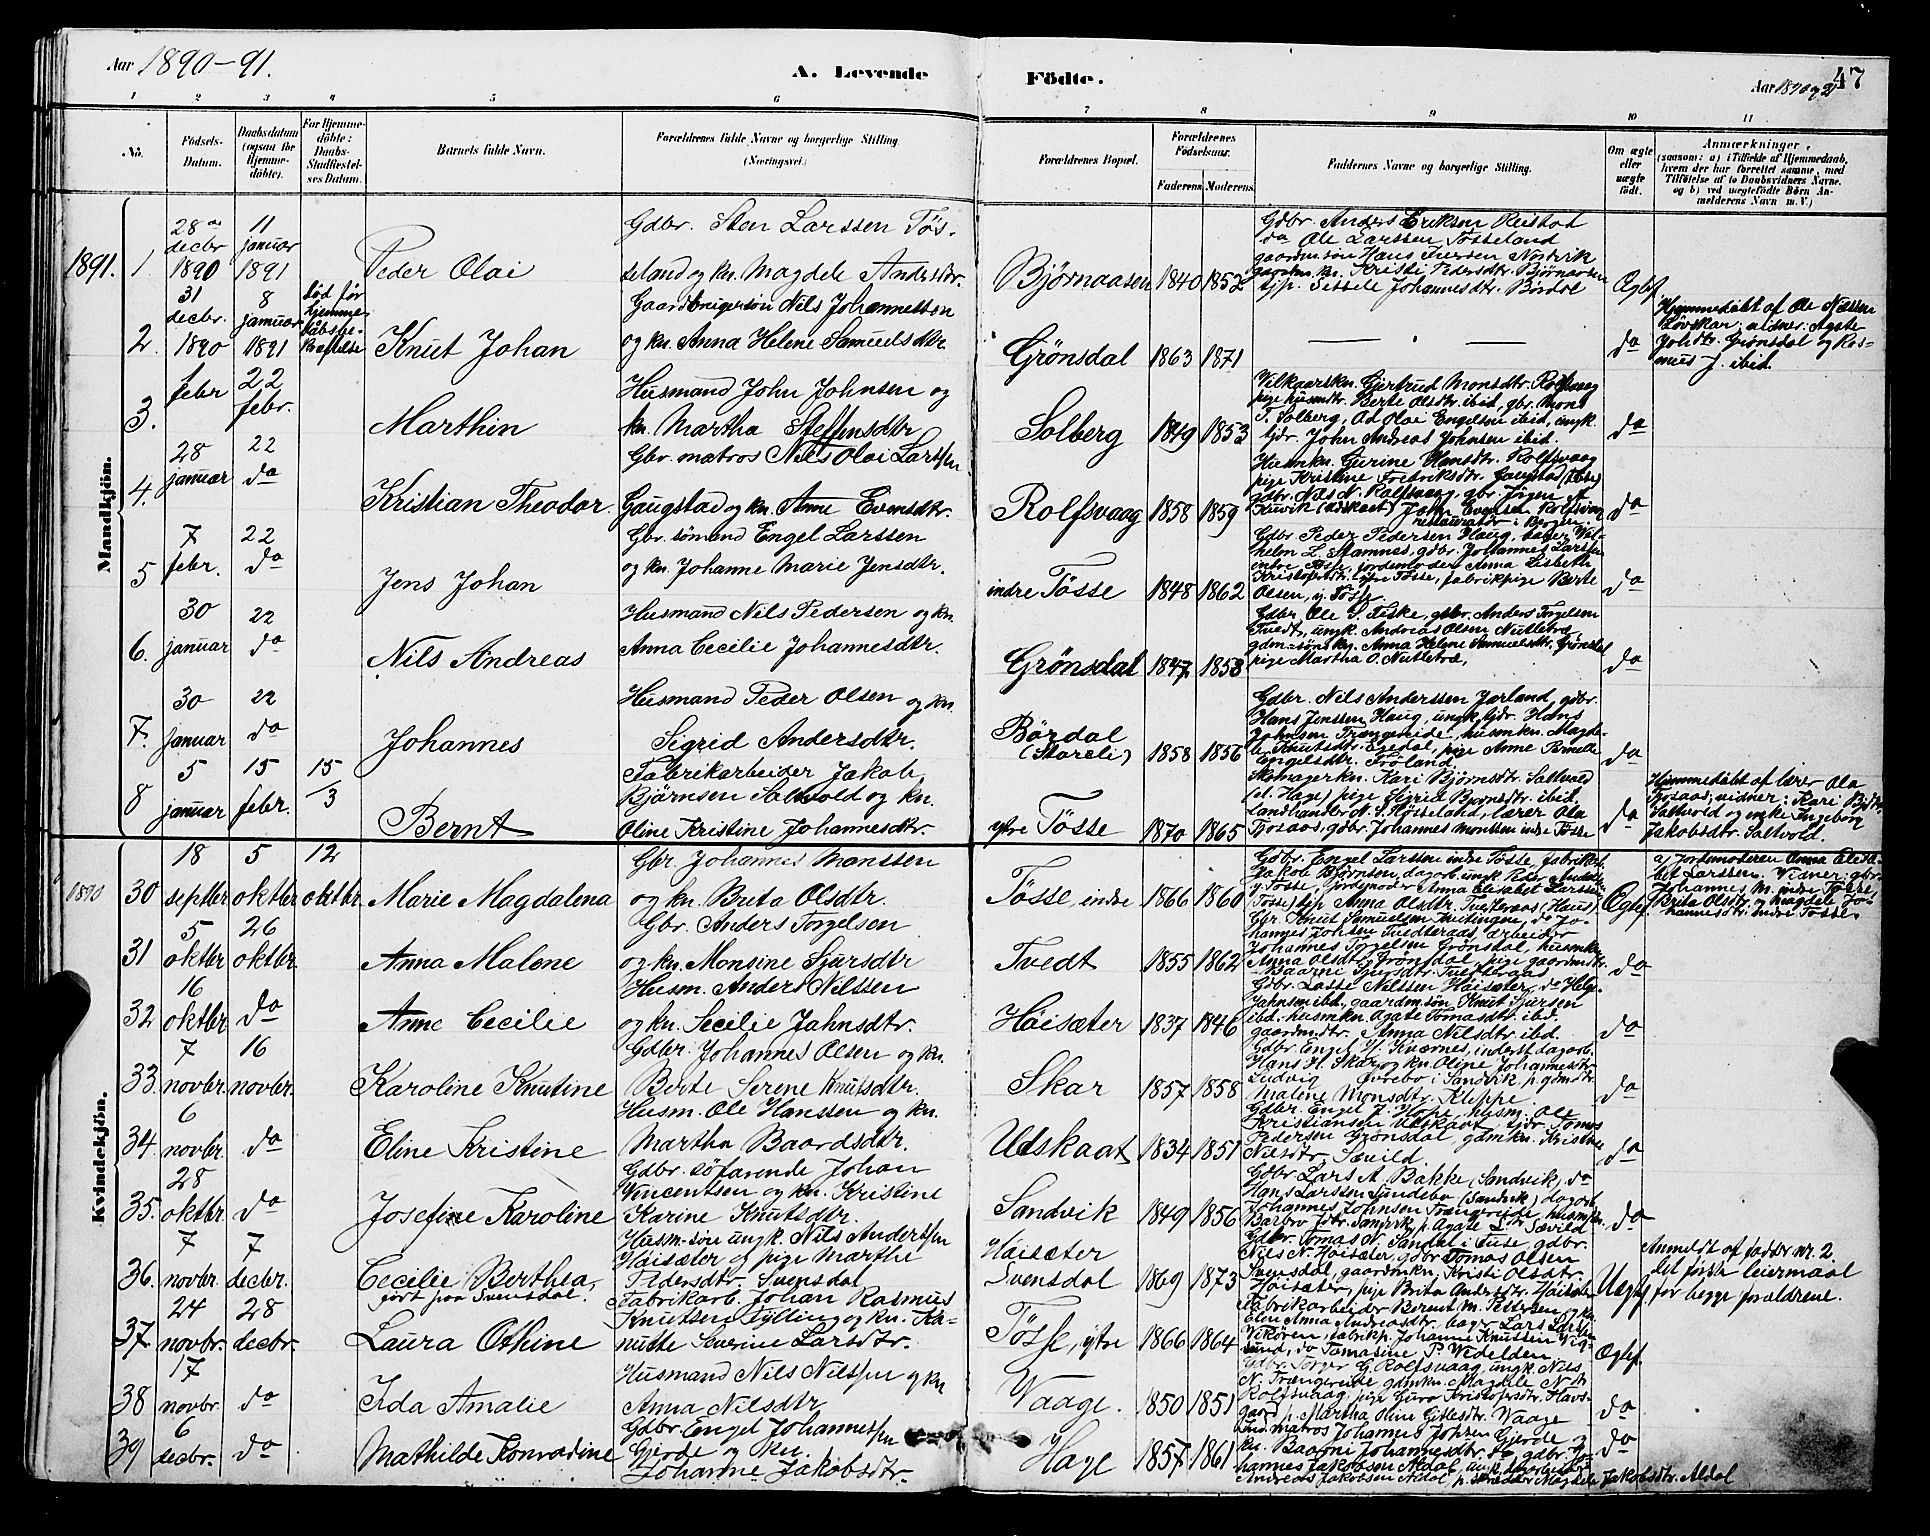 Aar 1890-91.
A. Levende
Födte.
Aar 1890-91
47
1 2 3 4 5 6 7 8 9 10 11
No.
Födsels-Datum.
Daabsdatum (ogsaa for Hjemme-döbte).
For Hjemme-döbte: Daabs-Stadfæstel-ses Datum.
Barnets fulde Navn.
Forældrenes fulde Navne og borgerlige Stilling (Næringsvei.)
Forældrenes Bopæl.
Forældrenes Födselsaar.
Faderens. Moderens.
Faddernes Navne og borgerlige Stilling.
Om ægte eller uægte födt.
Anmærkninger, (saasom: a) i Tilfælde af Hjemmedaab, hvem der har forrettet samme, med Tilföielse af to Daabsvidners Navne, og b) ved uægtefödte Börn An-melderens Navn m. V.)
Mandkjön.
1891. 1. 28de decbr 1890 11 januar 1891 Peder Olai
Gdbr. Sten Larssen Tös-
seland og kn. Magdele Andrsdtr.
Björnaasen 1840 1852
Gdbr. Anders Eriksen
do Ole Larssen Tösseland
gaardm.sön Hans Iversen
Kristi Pedersdtr. Björnaasen
tjp. Sissele Johannesdtr. Bördal
Ægtef
2. 31 decbr. 1890 8 januar 1891 död för hjemme-dåbsbe-kræftelse Knut Johan
Gaardbrugersön Nils Johannessen
og kn. Anna Helene Samuelsdtr.
Grönsdal 1863 1871 — — do
Hjemmedöbt af Ole
Lövskar; vidner: Agate
Johdtr. Grönsdal og Ras-
mus J. ibid.
3. 1 febr 22 febr. Marthin
Husmand John Johnsen og
kn. Martha Steffensdtr
Solberg 1849 1853
Vilkaarskn. Gjertrud Monsdtr. Rolfsvaag
pige husmdtr. Berte Olsdtr. ibid, gbr. Mons
T. Solberg, Olai Engelsen ibid, ungk.
tjdr. John Andreas Johnsen ibid.
do
4. 28 januar 22 do Kristian Theodor.
Gbr. matros Nils Olai Larssen
Gaugstad og kn. Anne Evensdtr.
Rolfsvaag 1858 1859
Husmkn. Gurine Hansdtr. Rolfsvaag
pige Kristine Fredriksdtr. Gaugstad
gdbr. Nils N. Rolfsvaag, gbr. Jörgen
John Evensen Rolfsvaag
restauratör i Bergen.
do
5 7 febr. 22 do Jens Johan
Gbr. sömand Engel Larssen
og kn. Johanne Marie Jensdtr.
indre Tösse 1848 1862
Gdbr. Peder Pedersen Haug, bager Wil-
helm L. Stamnes, gdbr. Johannes Larssen
indre Tösse, jordemoder Anna Lisbeth
ytre Tösse, fabrikpige Berte
Olsen, y. Tösse.
do
6. 30 januar 22 do Nils Andreas
Husmand Nils Pedersen og kn.
Anna Cecilie Johannesdtr.
Grönsdal 1847 1858
Gdbr. Ole S. Teske, gbr. Anders Torgelsen
Tvedt, ungk. Andreas Olsen Nuttetræ
gdm-söns kn. Anna Helene Samuelsdtr. Grönsdal
pige Martha O. Nuttetræ,
do
7. 30 januar 22 do Johannes
Husmand Peder Olsen og kn.
Sigrid Andersdtr.
Bördal
(Storeli) 1858 1856
Gdbr. Nils Anderssen Jorland, gdbr.
Hans Jenssen Haug, ungk. tjdr. Hans
Johnsen Trængereide, husmkn. Magde-
le Knutsdtr. Egedal, pige Anne
Engelsdtr. Fröland.
do
8 5 januar 15 febr. 15/3 Bernt
Fabrikarbeider Jakob
Björnsen Saltvold og kn.
Oline Kristine Johannesdtr.
ytre Tösse 1870 1865
Skomagerkn. Kari Björnsdtr. Saltvold
pige Sigrid Björnsdtr. ibid.
Landhandler N. S. Hösseland, lærer Ola
Tosaas, gdbr. Johannes Monssen indre Tösse
do
Hjemmedöbt af lærer Ola
Tosaas; vidner: Kari
Saltvold og enke Ingeborg
Jakobsdtr. Saltvold.
Kvindekjön.
1890 30 18 septbr 5 oktbr 12 oktbr Marie Magdalena
Gbr. Johannes Monssen
og kn. Brita Olsdtr.
Tösse, indre 1866 1860
Gdbr. Engel Larssen indre Tösse, fabrikarb.
Jakob Björnsen, dagarb. ungk. Peder
y. Tösse, jordemoder Anna Elisabet Larssen
Tösse, tjp. Anna Olsdtr. Tvetteraas (Haus)
Ægtef.
a) Jordemoderen Anna Elisa-
bet Larssen. Vidner: gbr.
Johannes M. indre Tösse,
Brita Olsdtr. og Magdele Jo-
hannesdtr. indre Tösse.
31 5 oktbr 26 oktbr. Anna Malene
Gbr. Anders Torgelsen
og kn. Monsine Sjursdtr
Tvedt 1855 1862
Gbr. Knut Samuelsen do Jo-
hannes Johnsen Tvedteraas, arbeider
Johannes Torgelsen Grönsdal, husmkn.
Anna Olsdtr. Grönsdal, pige gaardmdtr.
Baarni Sjursdtr. Tvetteraas
do
32 16 oktbr do Anne Cecilie
Husm. Anders Nilssen
og kn. Secilie Jahnsdtr.
Höisæter 1837 1846
Gdbr. Lasse Nilssen Höisæter, do Helge
Jahnsen ibd., gaardm.sön Knut Sjursen
ibd. husmkn. Agate Tomasdtr. ibd.
gaardm.dtr. Anna Nilsdtr. ibd.
do
33. 7 novbr. 16 novbr. Karoline Knutine
Gdbr. Johannes Olsen og kn.
Berte Serene Knutsdtr.
Skar 1857 1858
Gdbr. Engel H. Kværnes, inderst dagarb.
Hans H. Skar og kn. Oline Johannesdtr
Ludvig Övrebö i Sandvik, p. gdmdtr.
Malene Monsdtr. Kleppe.
do
34. 6 novbr. do Eline Kristine
Husm. Ole Hanssen og kn.
Martha Baardsdtr.
Udskaat 1834 1851
Gdbr. Engel J. Hope, husm. Ole
Kristiansen Udskaat, tjdr. Tomas
Pedersen Grönsdal, gdmkn. Kristine
Nilsdtr. Sævild
do
35. 28 oktbr. do Josefine Karoline
Gdbr. söfarende Johan
Vincentsen og kn. Kristine
Karine Knutsdtr.
Sandvik 1849 1856
Gdbr. Lars A. Bakke (Sandvik), do
Hans Larssen Sundebö (Sandvik) dagarb.
Johannes Johnsen Trængereide, husmkn.
Barbro Jdtr. Sandvik, p. Agate Sdtr. Sævild
do
36. 7 novbr. 7 decbr. Cecilie Berthea,
fört paa Svensdal.
Husm-sön ungk. Nils Anderssen
Höisæter og pige Marthe
Pedersdtr. Svensdal
Höisæter
Svensdal 1869 1873
Gdbr. Tomas N. Sandal i Fuse, gdbr.
Nils N. Höisæter, gdbr. Tomas Olsen
Svensdal, gaardmkn. Kristi Olsdtr.
Höisæter, pige Brita Andersdtr. Höisæter
Uægtef
Anmeldt af fadder nr. 2,
det förste leiermaal
for begge forældrene.
37. 24 novbr. 28 decbr. Laura Othine
Fabrikarb. Johan Rasmus
Knutsen Fylling og kn. Ka-
nutte Severine Larsdtr.
Tösse, ytre 1866 1864
Fabrikarbeider Berent M. Pedersen og kn.
Elen Anna Andreasdtr. bager Lars Larsen
Vikören, fabrikp. Johanne Knutsen Vig-
sund, do Tomasine P. Wedelden
Ægtef.
38 17 novbr. do Ida Amalie
Husmand Nils Nilssen og kn
Anna Nilsdtr
Waage. 1850 1851
Gdbr. Torger G. Rolfsvaag, ungk. Nils
N. Trængereide, gdmkn. Magdele N.dtr
Rolfsvaag, pige Guro Kristofersdtr. Havs-
gaard, p. Martha Oline Gitlesdtr. Waage
do
39 6 decbr. do Mathilde Konradine
Gdbr. Engel Johannessen
Gjerde og kn.
Johanne Jakobsdtr.
Hage 1857 1861
Ind. matros Johannes Johnsen Gjerde og
kn. Baarni Johannesdtr. do gdbr. Jo-
hannes Jakobsen Aldal, ungk.
Andreas Jakobsen Aldal, p. Magdele Jakobsdtr. Aldal
do